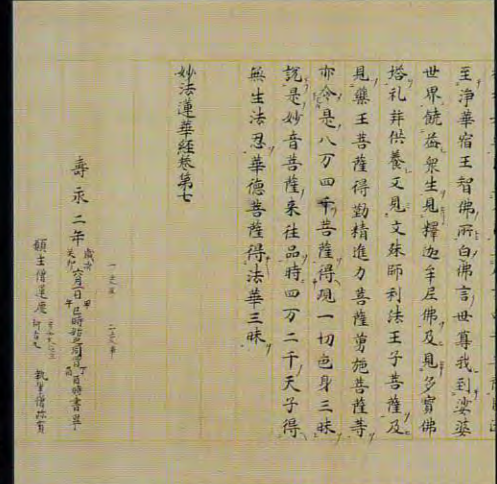 至淨華宿王智佛所白佛言世尊我到娑婆
世界饒益衆生見釋迦牟尼佛及見多寶佛
塔礼拜供養又見文殊師利法王子菩薩及
見藥王菩薩得勤精進力菩薩勇施菩薩等
亦令是八万四千菩薩得現一切色身三昧
說是妙音菩薩来往品時四万二千天子得
無生法忍華德菩薩得法華三昧
妙法蓮華經卷第七
壽永二年歳次癸卯六月一日甲午巳時始
願主僧運慶
執筆僧珍賀